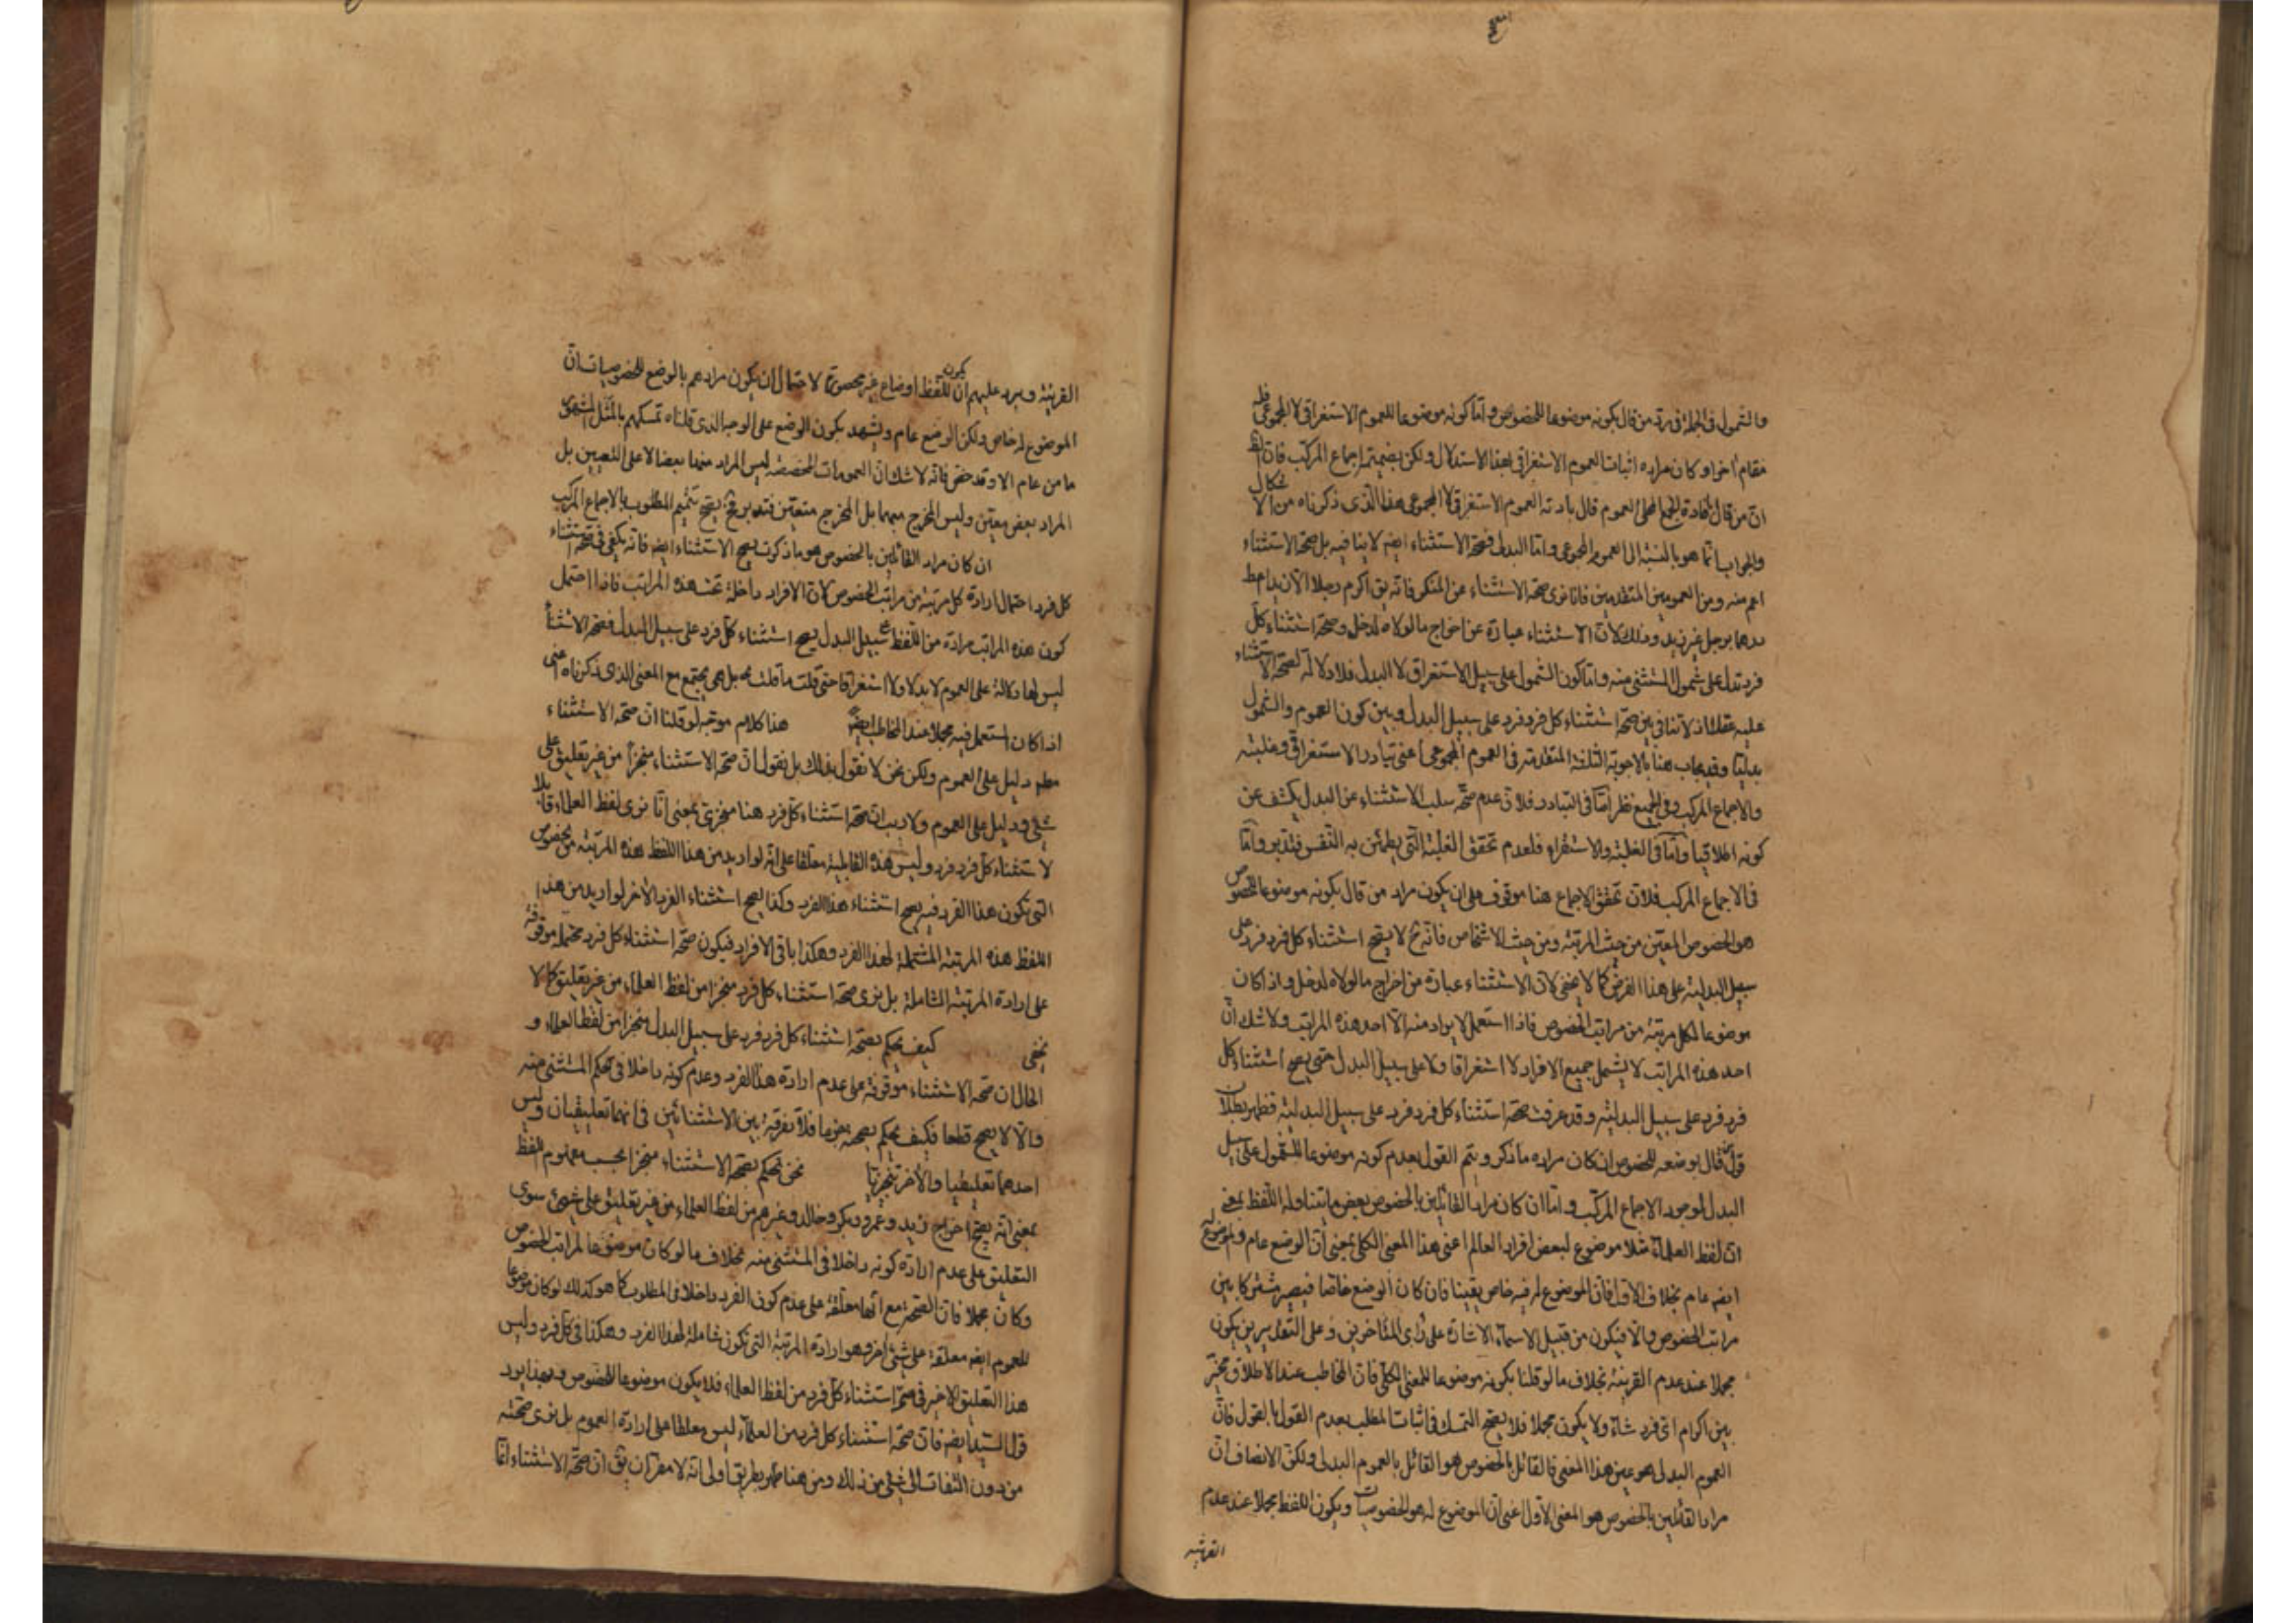 والشمول في الجملة في رد من قال بكونه موضوعا للخصوص واما كونه موضوعا للعموم الاستغراقي لا المجموعي فله
مقام اخر او كان مراده اثبات العموم الاستغراقي بهذا الاستدلال ولكن بضميمة اجماع المركب فان
ان من قال بافادة الجمع المحلى العموم قال بارادته العموم الاستغراقي لا المجموعي هذا الذي ذكرناه من الاشكال
والجواب انما هو بالنسبة الى العموم المجموعي واما البدلي فصحة الاستثناء ايضه لا ينافيه بل صحة الاستثناء
اعم منه ومن العمومين المتقدمين فانا نرى صحة الاستثناء عن المنكر فانه يق اكرم رجلا الا زيدا
درهما برجل غير زيد وذلك لان الاستثناء عبارة عن اخراج مالولاه لدخل وصحة استثناء كل
فرد تدل على شمول المستثنى منه واما كون الشمول على سبيل الاستغراق لا البدل فلا دلالة لصحة الاستثناء
عليه عقلا اذ لا تنافي بين صحة استثناء كل فرد فرد على سبيل البدل وبين كون العموم والشمول
بدليا وقد يجاب هنا بالاجوبة الثلثة المتقدمة في العموم المجموعي اعني تبادر الاستغراقي وغلبته
والاجماع المركب وفي الجميع نظر اما في التبادر فلان عدم صحة سلب الاستثناء عن البدل يكشف عن
كونه اطلاقيا واما في الغلبة والاستقراء فلعدم تحقق الغلبة التي يطمئن به النفس فتدبر واما
في الاجماع المركب فلان تحقق الاجماع هنا موقوف على ان يكون مراد من قال بكونه موضوعا للخصوص
هو الخصوص المعين من حيث المرتبة ومن حيث الاشخاص فانه ح لا يصح استثناء كل فرد فرد على
سبيل البدلية على هذا الفرض كما لا يخفى لان الاستثناء عبارة من اخراج مالولاه لدخل واذا كان
موضوعا لكل مرتبة من مراتب الخصوص فاذا استعمل لا يراد منه الا احد هذه المراتب ولا شك ان
احد هذه المراتب لا يشمل جميع الافراد لا استغراقا ولا على سبيل البدل حتى يصح استثناء كل
فرد فرد على سبيل البدلية وقد عرفت صحة استثناء كل فرد فرد على سبيل البدلية فظهر بطلان
قول من قال بوضعه للخصوص ان كان مراده ما ذكر ويتم القول بعدم كونه موضوعا للشمول على سبيل
البدل لوجود الاجماع المركب واما ان كان مراد القائلين بالخصوص بعض ما يتناوله اللفظ بمعنى
ان لفظ العلماء مثلا موضوع لبعض افراد العالم اعني هذا المعنى الكلي بمعنى ان الوضع عام والموضوع له
ايضه عام بخلاف الاول فان الموضوع له فيه خاص يقينا فان كان الوضع خاصا فيصير مشتركا بين
مراتب الخصوص والا فيكون من قبيل الاسماء الاشارة على رأي المتأخرين وعلى التقديرين يكون
مجملا عند عدم القرينة بخلاف ما لو قلنا بكونه موضوعا للمعنى الكلي فان المخاطب عند الاطلاق مخير
بين اكرام اي فرد شاء ولا يكون مجملا فلا يصح التمسك في اثبات المطلب بعدم القول بالقول فان
العموم البدلي هو عين هذا المعنى فالقائل بالخصوص هو القائل بالعموم البدلي ولكن الانصاف ان
مراد القائلين بالخصوص هو المعنى الاول اعني ان الموضوع له هو الخصوصيات ويكون اللفظ مجملا عند عدم
القرينة
القرينة ويرد عليهم ان يكون للفظ اوضاع غير محصورة لاحتمال ان يكون مرادهم بالوضع للخصوصيات ان
الموضوع له خاص ولكن الوضع عام ويشهد بكون الوضع على الوجه الذي قلناه تمسكهم بالمثل المشهور
ما من عام الا وقد خص فانه لا شك ان العمومات المخصصة ليس المراد منها بعضا لا على التعيين بل
المراد بعض معين وليس المخرج مبهما بل المخرج متعين فتدبر ح يصح تتميم المطلوب بالاجماع المركب
ان كان مراد القائلين بالخصوص هو ما ذكرت يصح الاستثناء ايضه فانه يكفي في صحة استثناء
كل فرد احتمال ارادة كل مرتبة من مراتب الخصوص لان الافراد داخلة تحت هذه المراتب فاذا احتمل
كون هذه المراتب مرادة من اللفظ على سبيل البدل يصح استثناء كل فرد على سبيل البدل فصحة الاستثناء
ليس لها دلالة على العموم لا بدلا ولا استغراقا حتى قلت ما قلت به بل هي يجتمع مع المعنى الذي ذكرناه اعني
اذا كان استعمل فيه مجملا عند المخاطب ايضه هذا كلام موجه لو قلنا ان صحة الاستثناء
مطم دليل على العموم ولكن نحن لا نقول بذلك بل نقول ان صحة الاستثناء منجزا من غير تعليق على
شيء دليل على العموم ولا ريب ان صحة استثناء كل فرد هنا منجزي بمعنى انا نرى لفظ العلماء قابلا
لاستثناء كل فرد فرد وليس هذه القابلية معلقا على انه لو اريد من هذا اللفظ هذه المرتبة من الخصوص
التي تكون هذا الفرد فيه يصح استثناء هذا الفرد وكذا يصح استثناء الفرد الاخر لو اريد من هذا
اللفظ هذه المرتبة المشتملة لهذا الفرد وهكذا باقي الافراد فيكون صحة استثناء كل فرد محتملة موقوفة
على ارادة المرتبة الشاملة بل نرى صحة استثناء كل فرد منجزا من لفظ العلماء من غير تعليق كما لا
يخفى كيف يحكم بصحة استثناء كل فرد فرد على سبيل البدل منجزا من لفظ العلماء و
الحال ان صحة الاستثناء موقوفة على عدم ارادة هذا الفرد وعدم كونه داخلا في حكم المستثنى منه
والا لا يصح قطعا فكيف يحكم بصحة فلا تفرقة بين الاستثنائين فانهما تعليقيان وليس
احدهما تعليقيا والاخر تنجزيا نحن نحكم بصحة الاستثناء منجزا بحسب مفهوم اللفظ
بمعنى انه يصح اخراج زيد وعمرو وبكر وخالد وغيرهم من لفظ العلماء من غير تعليق على شيء سوى
التعليق على عدم ارادة كونه داخلا في المستثنى منه بخلاف ما لو كان موضوعا لمراتب الخصوص
وكان مجملا فان الصحة مع انها معلقة على عدم كون الفرد داخلا في المطلوب كما هو كذلك لو كان موضوعا
للعموم ايضه معلقة على شيء اخر وهو ارادة المرتبة التي تكون شاملة لهذا الفرد وهكذا في كل فرد وليس
هذا التعليق الاخير في صحة استثناء كل فرد من لفظ العلماء فلا يكون موضوعا للخصوص وبهذا يرد
قول السيد ايضه فان صحة استثناء كل فرد من العلماء ليس معلقا على ارادة العموم بل نرى صحته
من دون التفات الى شيء من ذلك ومن هنا ظهر بطريق اولى انه لا مفر ان يق ان صحة الاستثناء انما